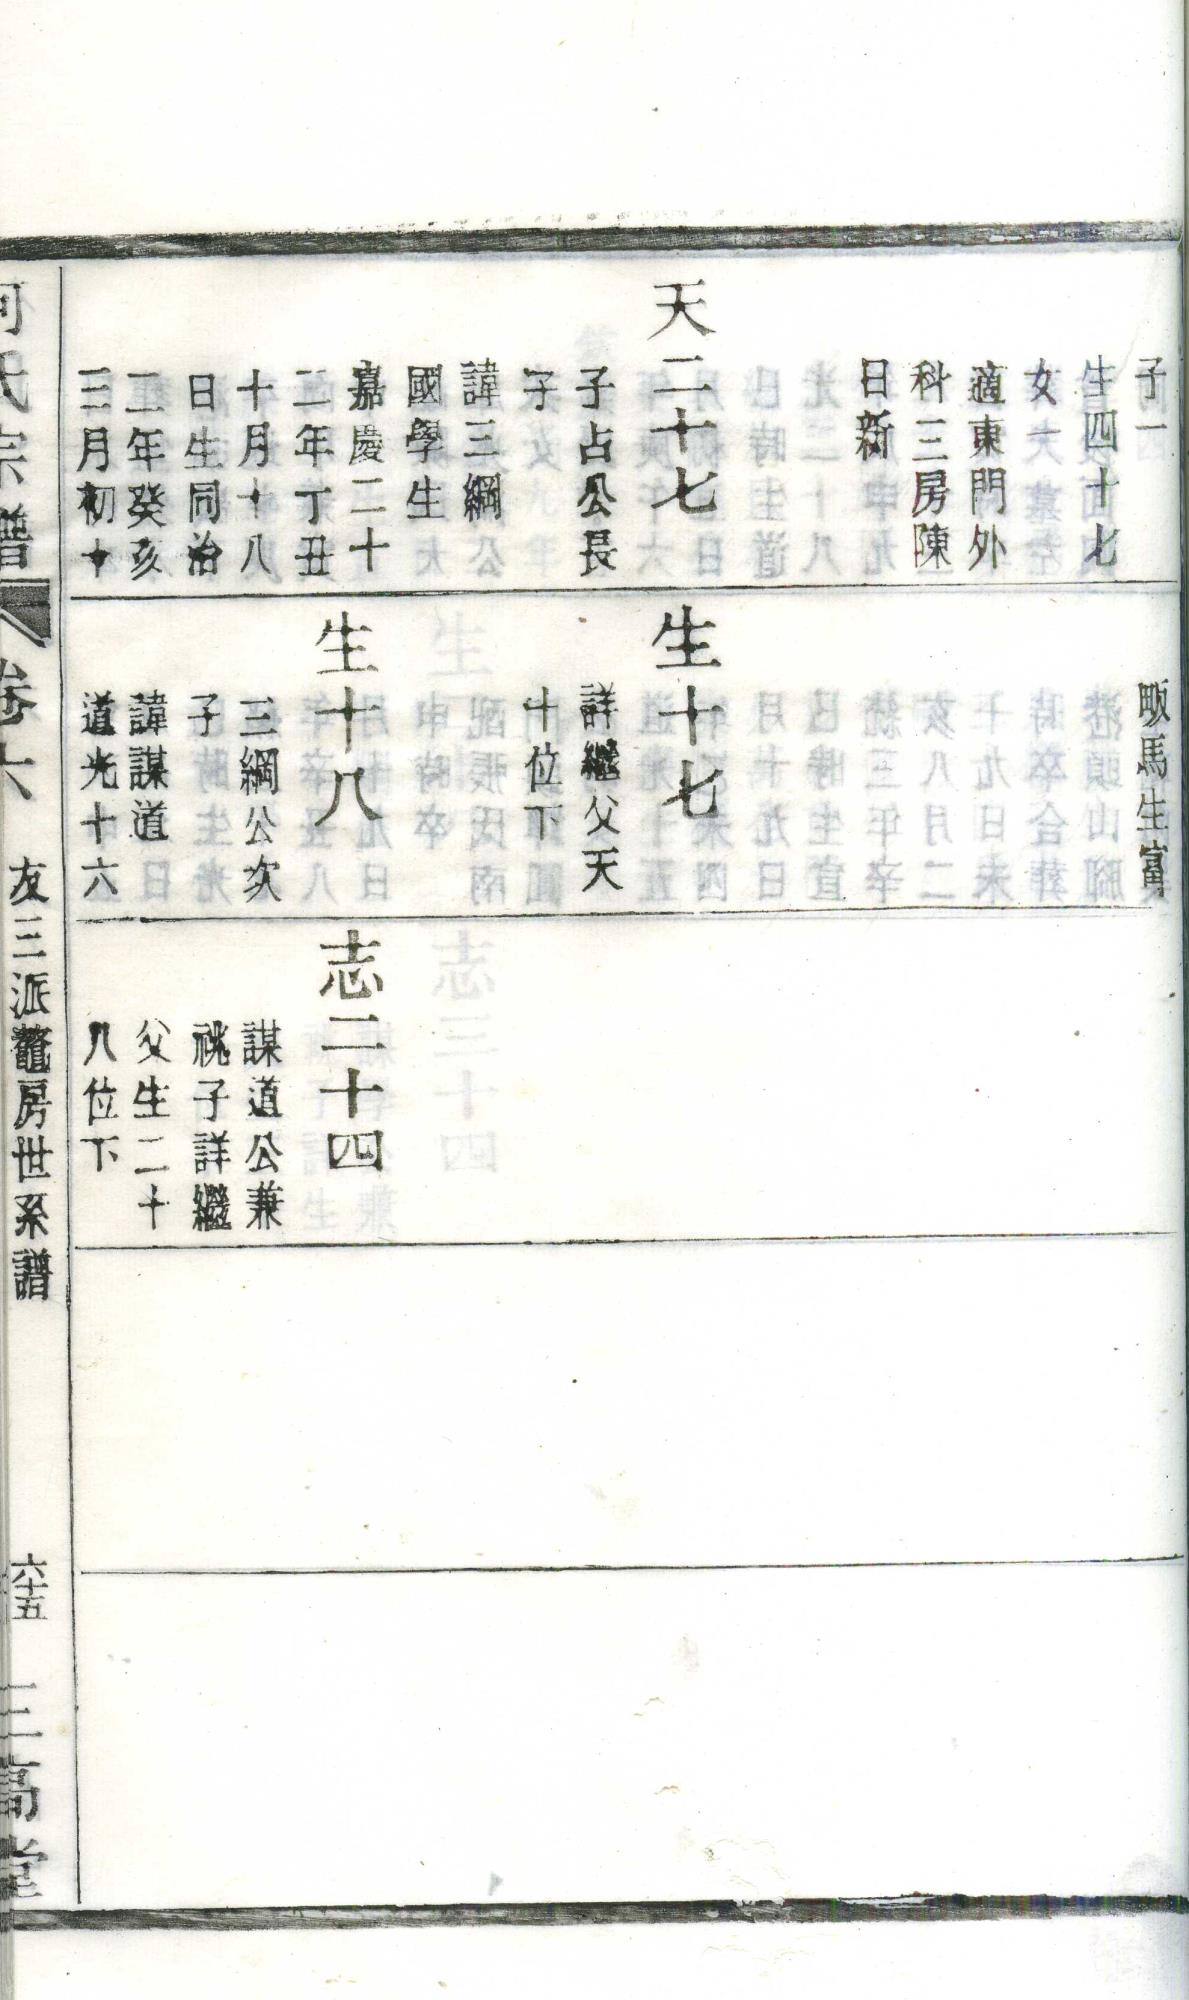 子一
生四十七
女一
適東門外
科三房陳
日新
天二十七
子占公長
子
諱三綱
國學生
嘉慶二十
二年丁丑
十月十八
日生同治
二年癸亥
三月初十
畈馬生富
生十七
詳繼父天
十位下
生十八
三綱公次
子
諱謀道
道光十六
志二十四
謀道公兼
祧子詳繼
父生二十
八位下
何氏宗譜
卷六
友三派鼇房世系譜
六十五
三高堂